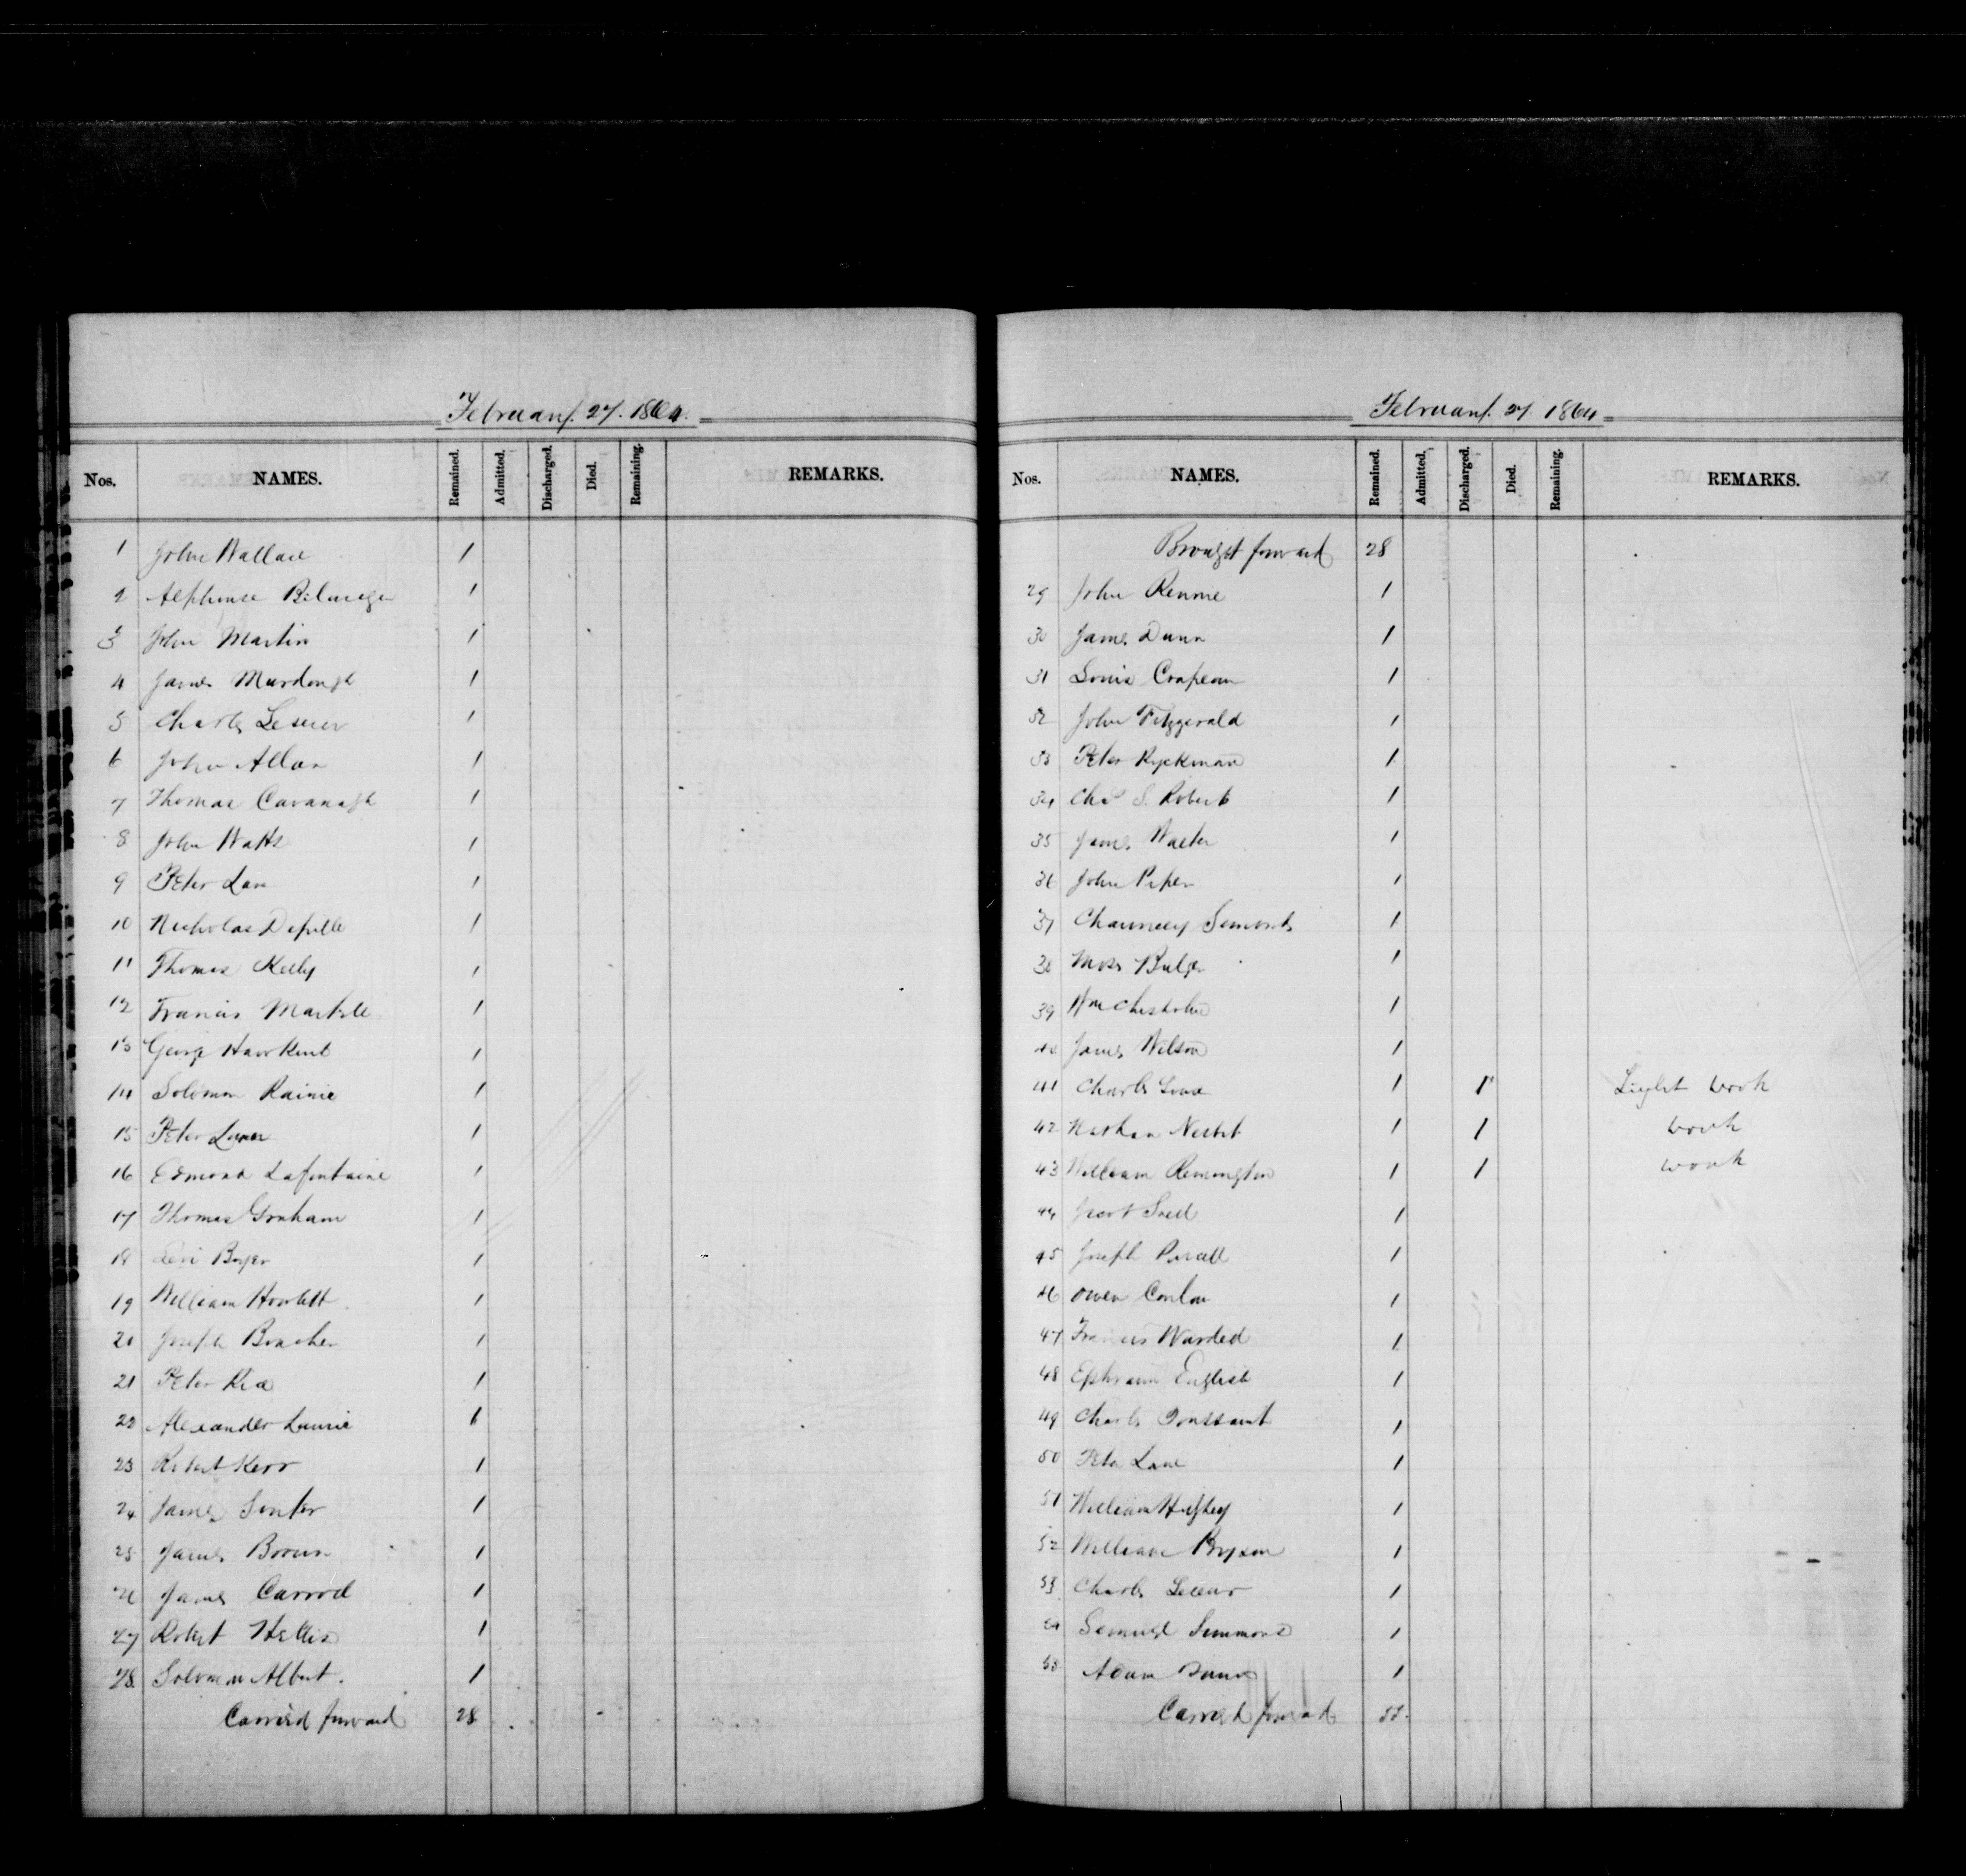 February. 27. 1864.
Nos. NAMES. Remained. Admitted. Discharged. Died. Remaining. REMARKS.
1 John Wallace 1
2 Alphonse 1
3 John Martin 1
4 James Murdough 1
5 Charles Lesuer 1
6 John Allan 1
7 Thomas Cavanagh 1
8 John Watts 1
9 Peter Lan 1
10 Nicholas Deville 1
11 Thomas Kelly 1
12 Francis 1
13 George 1
14 Solomon Rainie 1
15 Peter 1
16 Edmond Lafontaine 1
17 Thomas Graham 1
18 Levi Boyer 1
19 William Howlett 1
20 Joseph 1
21 Peter 1
22 Alexander Laurie 1
23 Robert Kerr 1
24 James 1
25 James Brown 1
26 James Carrol 1
27 Robert Hellis 1
28 Solomon Albert. 1
Carried forward 28
February. 27. 1864
Nos. NAMES. Remained. Admitted. Discharged. Died. Remaining. REMARKS.
Brought forward 28
29 John Rennie 1
30 James Dunn 1
31 Louis Crapeau 1
32 John Fitzgerald 1
33 Peter Ryckman 1
34 Chas S. Robert 1
35 James Walter 1
36 John Piper 1
37 Chauncey 1
38 Moses Bulger 1
39 Wm Chisholm 1
40 James Wilson 1
41 Charles 1 1 Light work
42 Nathan Nesbit 1 1 work
43 William Remington 1 1 work
44 Jacob Snell 1
45 Joseph Purcell 1
46 Owen Conlon 1
47 Francis Warded 1
48 Ephraim English 1
49 Charles Toussaint 1
50 Peter Lane 1
51 William Hughey 1
52 William Bryson 1
53 Charles Leceur 1
54 Samuel Simmons 1
55 Adam 1
Carried forward 55.